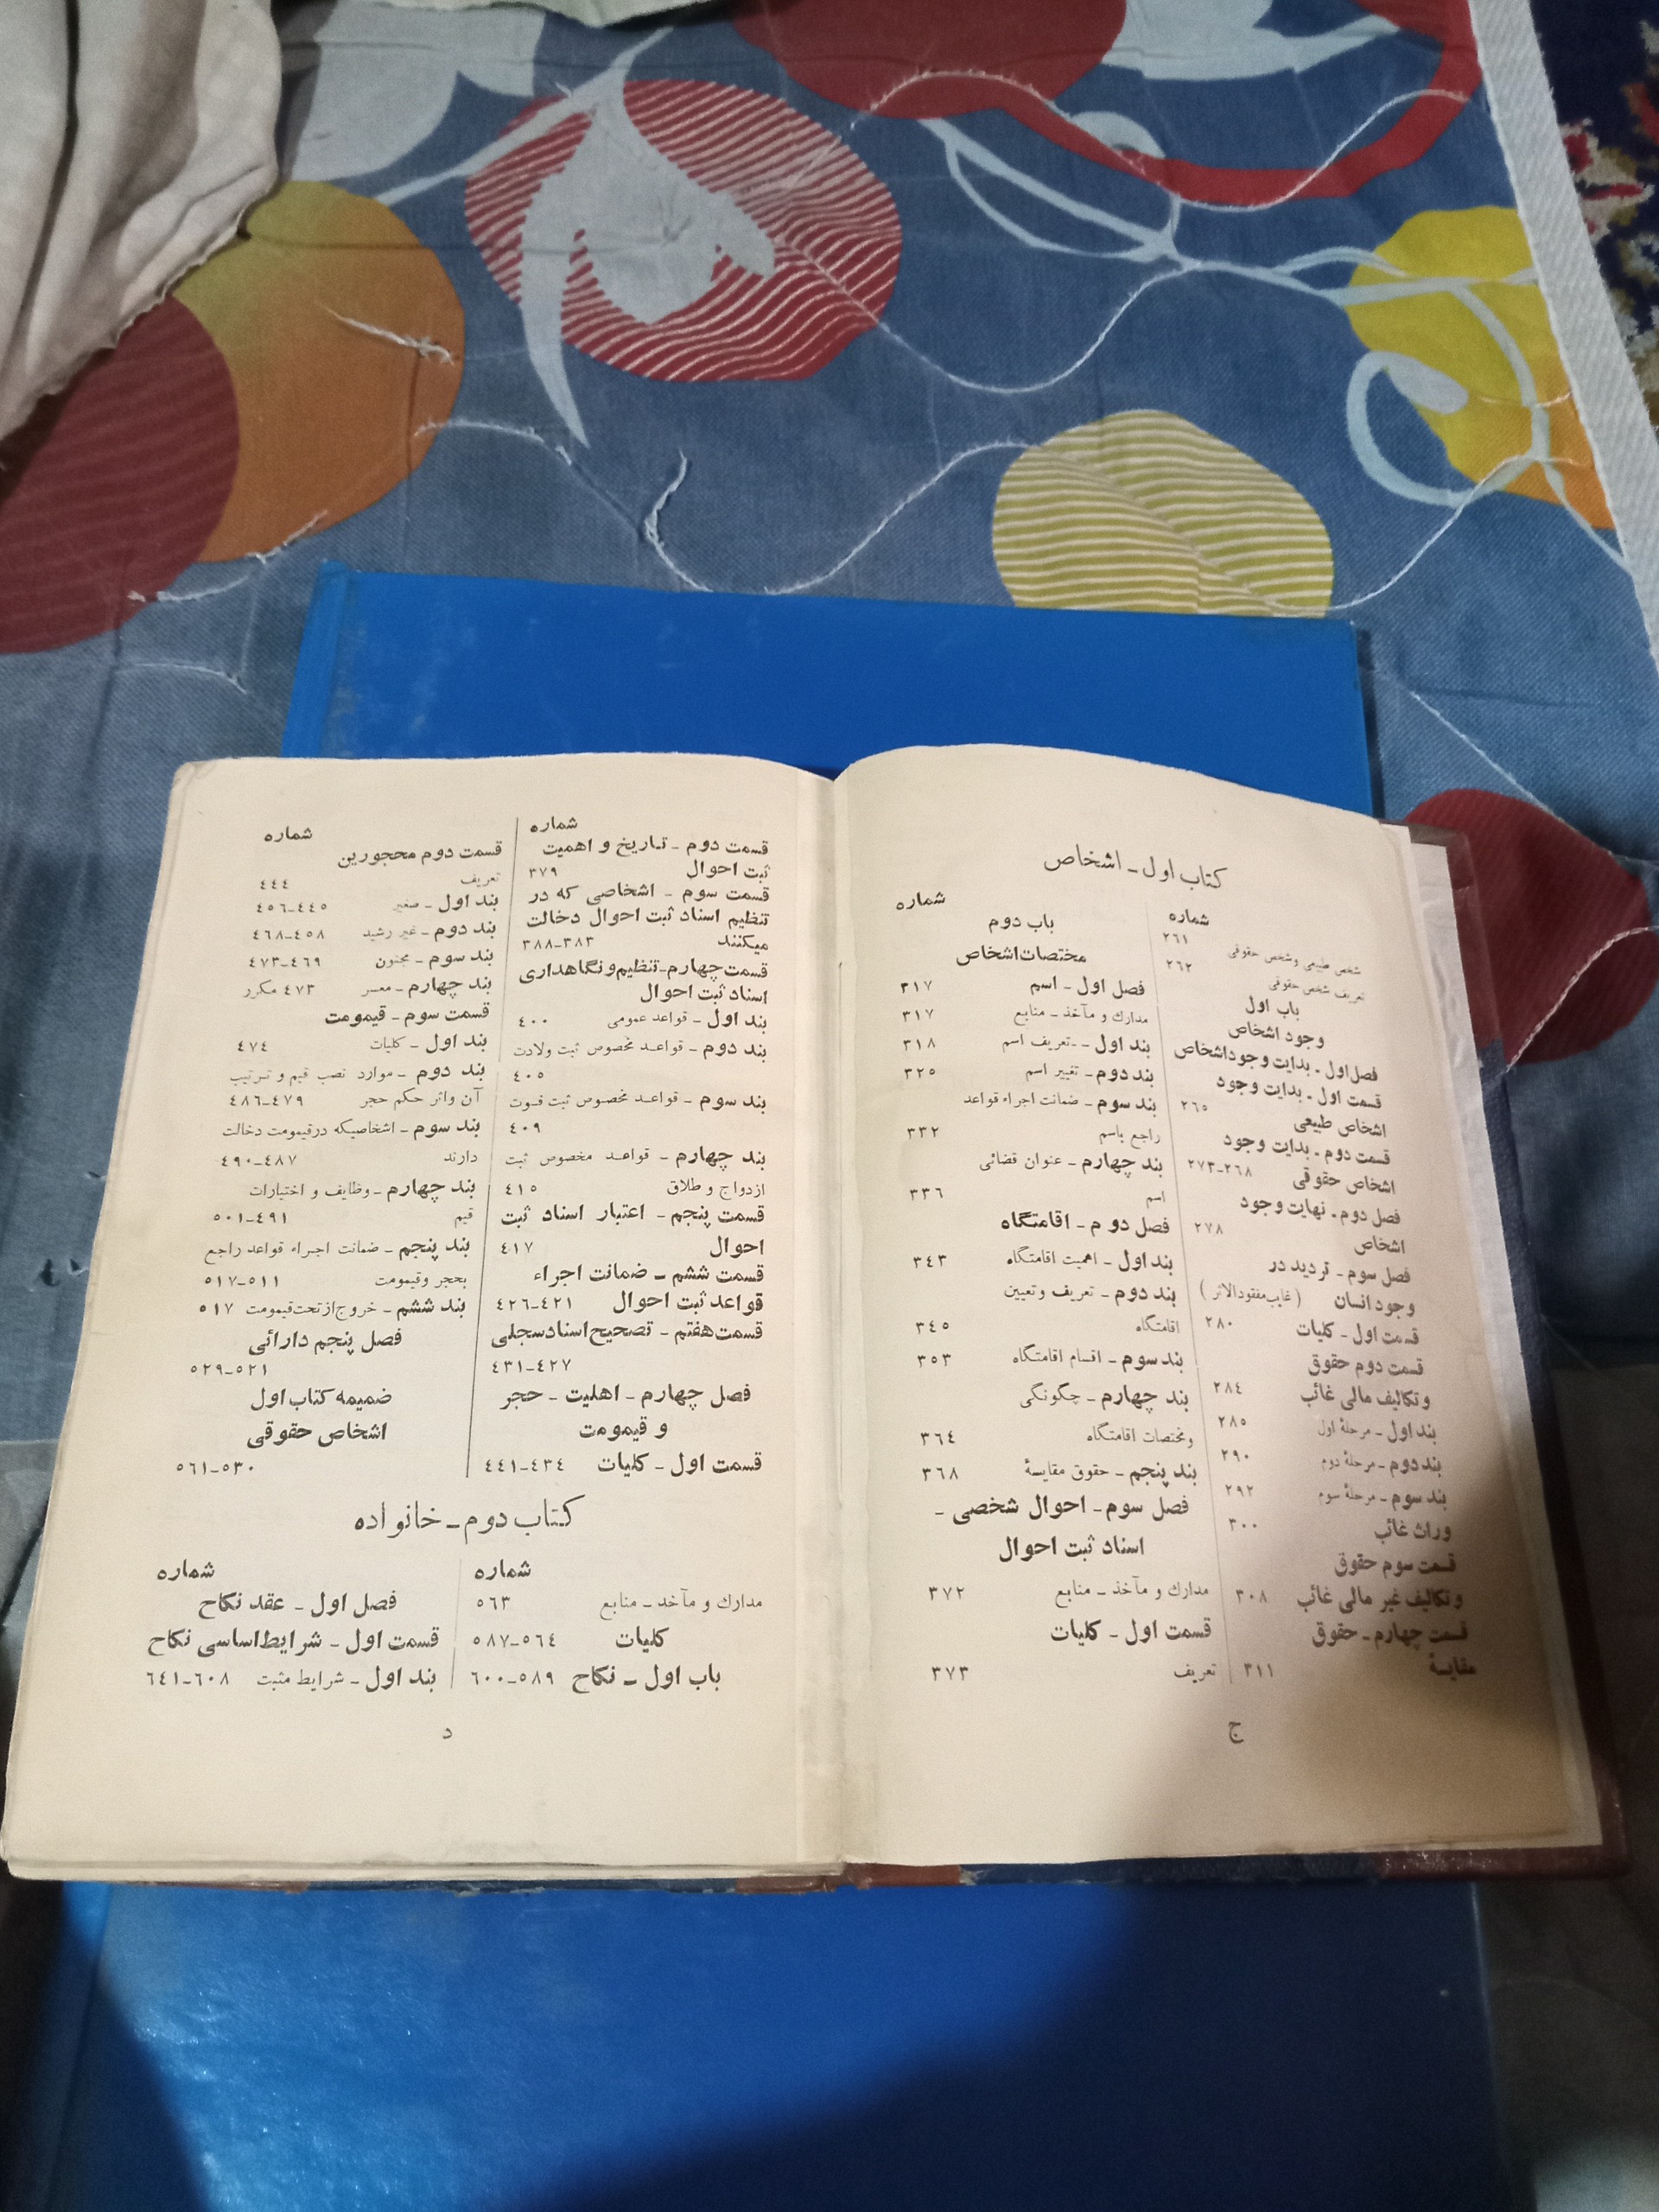 کتاب اول ـ اشخاص
شماره
شخص طبیعی وشخص حقوقی ٢٦١
تعریف شخص حقوقی ٢٦٢
باب اول
وجود اشخاص
فصل اول ـ بدایت وجوداشخاص
قسمت اول ـ بدایت وجود
اشخاص طبیعی ٢٦٥
قسمت دوم ـ بدایت وجود
اشخاص حقوقی ٢٦٨-٢٧٣
فصل دوم ـ نهایت وجود
اشخاص ٢٧٨
فصل سوم ـ تردید در
وجود انسان (غایب مفقودالاثر)
قسمت اول ـ کلیات ٢٨٠
قسمت دوم حقوق
وتکالیف مالی غائب ٢٨٤
بند اول ـ مرحلهٔ اول ٢٨٥
بند دوم ـ مرحلهٔ دوم ٢٩٠
بند سوم ـ مرحلهٔ سوم ٢٩٢
وراث غائب ٣٠٠
قسمت سوم حقوق
وتکالیف غیر مالی غائب ٣٠٨
قسمت چهارم ـ حقوق
مقایسهٔ ٣١١
شماره
باب دوم
مختصات اشخاص
فصل اول ـ اسم ٣١٧
مدارك و مآخذ ـ منابع ٣١٧
بند اول ـ ـتعریف اسم ٣١٨
بند دوم ـ تغییر اسم ٣٢٥
بند سوم ـ ضمانت اجراء قواعد
راجع باسم ٣٣٢
بند چهارم ـ عنوان قضائی
اسم ٣٣٦
فصل دوم ـ اقامتگاه
بند اول ـ اهمیت اقامتگاه ٣٤٣
بند دوم ـ تعریف وتعیین
اقامتگاه ٣٤٥
بند سوم ـ اقسام اقامتگاه ٣٥٣
بند چهارم ـ چگونگی
ومختصات اقامتگاه ٣٦٤
بند پنجم ـ حقوق مقایسهٔ ٣٦٨
فصل سوم ـ احوال شخصی ـ
اسناد ثبت احوال
مدارك و مآخذ ـ منابع ٣٧٢
قسمت اول ـ کلیات
تعریف ٣٧٣
ج
شماره
قسمت دوم ـ تاریخ و اهمیت
ثبت احوال ٣٧٩
قسمت سوم ـ اشخاصی که در
تنظیم اسناد ثبت احوال دخالت
میکنند ٣٨٣-٣٨٨
قسمت چهارم-تنظیم ونگاهداری
اسناد ثبت احوال
بند اول ـ قواعد عمومی ٤٠٠
بند دوم ـ قواعد مخصوص ثبت ولادت
٤٠٥
بند سوم ـ قواعد مخصوص ثبت فوت
٤٠٩
بند چهارم ـ قواعد مخصوص ثبت
ازدواج و طلاق ٤١٥
قسمت پنجم ـ اعتبار اسناد ثبت
احوال ٤١٧
قسمت ششم ـ ضمانت اجراء
قواعد ثبت احوال ٤٢١-٤٢٦
قسمت هفتم ـ تصحیح اسنادسجلی
٤٢٧-٤٣١
فصل چهارم ـ اهلیت ـ حجر
و قیمومت
قسمت اول ـ کلیات ٤٣٤-٤٤١
شماره
قسمت دوم محجورین
تعریف ٤٤٤
بند اول ـ صغیر ٤٤٥-٤٥٦
بند دوم ـ غیر رشید ٤٥٨-٤٦٨
بند سوم ـ مجنون ٤٦٩-٤٧٣
بند چهارم ـ معسر ٤٧٣ مکرر
قسمت سوم ـ قیمومت
بند اول ـ کلیات ٤٧٤
بند دوم ـ موارد نصب قیم و ترتیب
آن واثر حکم حجر ٤٧٩-٤٨٦
بند سوم ـ اشخاصیکه درقیمومت دخالت
دارند ٤٨٧-٤٩٠
بند چهارم ـ وظایف و اختیارات
قیم ٤٩١-٥٠١
بند پنجم ـ ضمانت اجراء قواعد راجع
بحجر وقیمومت ٥١١-٥١٧
بند ششم ـ خروج ازتحت قیمومت ٥١٧
فصل پنجم دارائی
٥٢١-٥٢٩
ضمیمه کتاب اول
اشخاص حقوقی
٥٣٠-٥٦١
کتاب دوم ـ خانواده
شماره
مدارك و مآخد ـ منابع ٥٦٣
کلیات ٥٦٤-٥٨٧
باب اول ـ نکاح ٥٨٩-٦٠٠
شماره
فصل اول ـ عقد نکاح
قسمت اول ـ شرایط اساسی نکاح
بند اول ـ شرایط مثبت ٦٠٨-٦٤١
د